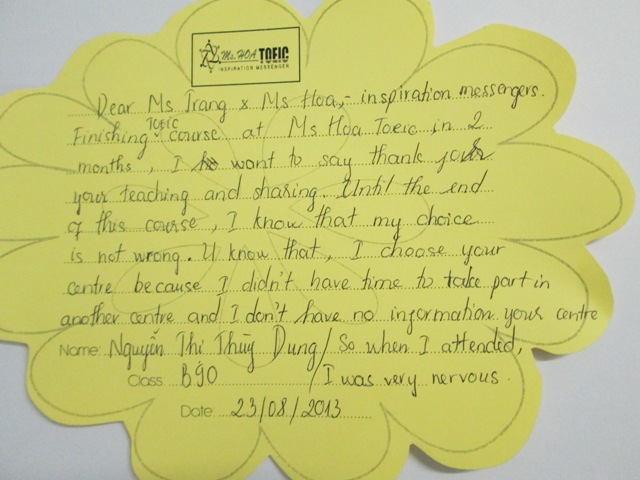 Ms. HOA TOEIC
INSPIRATION MESSENGER
Dear Ms Trang & Ms Hoa, - inspiration messengers.
Finishing Toeic course at Ms Hoa Toeic in 2
months, I want to say thank your
your teaching and sharing. Until the end
of this course, I know that my choice
is not wrong. U know that, I choose your
centre because I didn't have time to take part in
another centre and I don't have no information your centre
Name: Nguyễn Thị Thùy Dung / So when I attended,
Class: B90 / I was very nervous.
Date: 23/08/2013